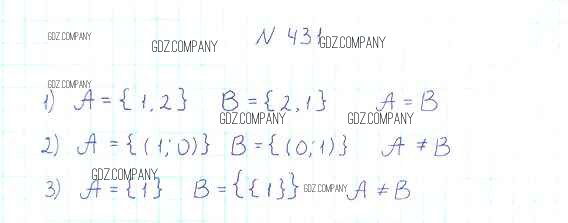 GDZ.COMPANY
GDZ.COMPANY
N 431
GDZ.COMPANY
GDZ.COMPANY
1) A = {1, 2} B = {2, 1} A = B
GDZ.COMPANY
GDZ.COMPANY
2) A = {(1; 0)} B = {(0; 1)} A ≠ B
GDZ.COMPANY
3) A = {1} B = {{1}} GDZ.COMPANY A ≠ B